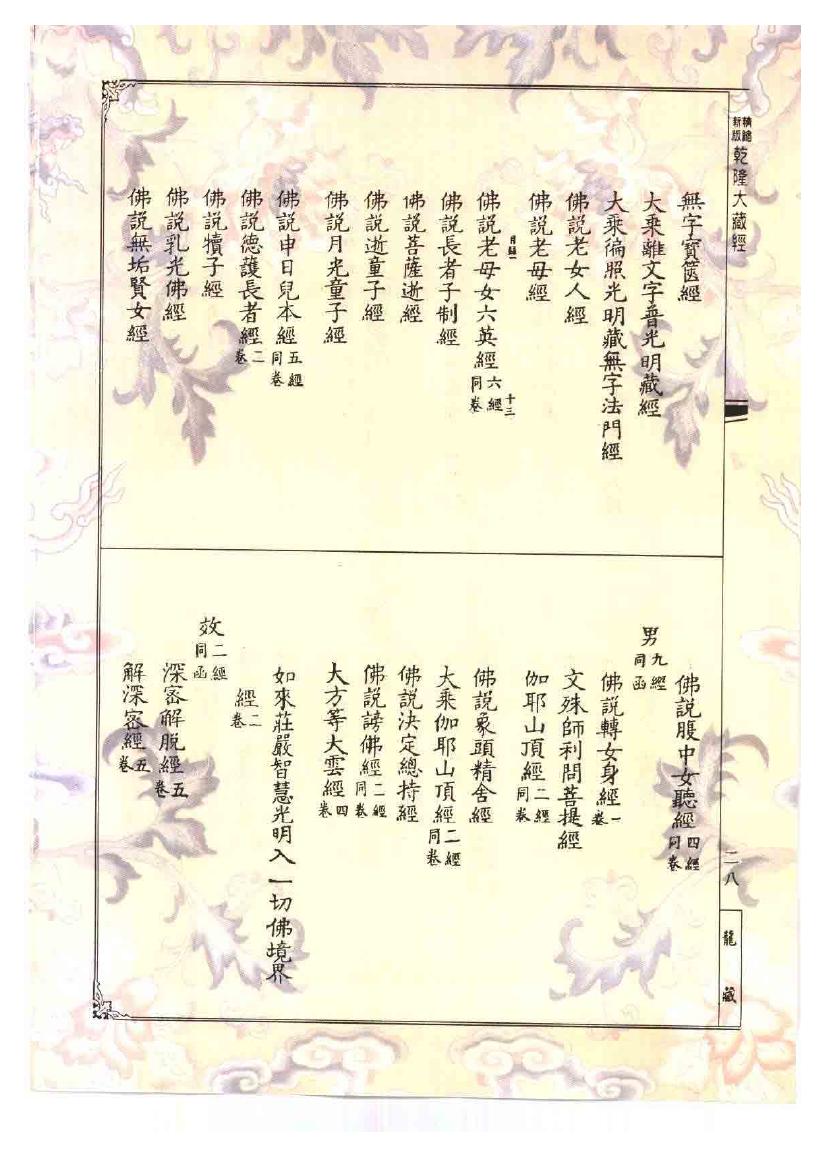 精縮新版 乾隆大藏經
無字寶篋經
大乘離文字普光明藏經
大乘徧照光明藏無字法門經
佛說老女人經
佛說老母經
目錄一 十三
佛說老母女六英經 六經同卷
佛說長者子制經
佛說菩薩逝經
佛說逝童子經
佛說月光童子經
佛說申日兒本經 五經同卷
佛說德護長者經 二卷
佛說犢子經
佛說乳光佛經
佛說無垢賢女經
佛說腹中女聽經 四經同卷
男 九經同函
佛說轉女身經 一卷
文殊師利問菩提經
伽耶山頂經 二經同卷
佛說象頭精舍經
大乘伽耶山頂經 二經同卷
佛說決定總持經
佛說謗佛經 二經同卷
大方等大雲經 四卷
如來莊嚴智慧光明入一切佛境界
經 二卷
效 二經同函
深密解脫經 五卷
解深密經 五卷
二八
龍藏